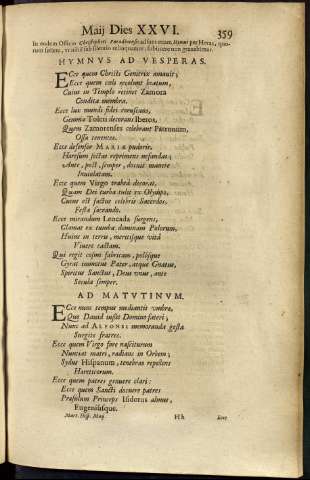 Maij Dies XXVI. 359
HYMNVS AD VESPERAS.
ECce quem Christi Genitrix amauit;
Ecce quem cœli recolunt beatum,
Cuius in Templo retinet Zamora
Condita membra.
Ecce lux mundi fidei coruscans,
Gemma Toleti decorans Iberos,
Quem Zamorenses celebrant Patronum,
Ossa tenentes.
Ecce defensor MARIÆ pudoris,
Hæresum sectas reprimens nefandas;
Ante, post, semper, docuit manere
Inuiolatam.
Ecce quem Virgo trabeâ decorat,
Quam Dei turba tulit ex Olympo,
Cuius est factus celebris Sacerdos,
Festa sacrando.
Ecce mirandum Leocada surgens,
Clamat ex tumba dominam Polorum,
Huius in terris, meritisque vitâ
Viuere tactam.
Qui regit cosmi fabricam, polosque
Gyrat immitus Pater, atque Gnatus,
Spiritus Sanctus, Deus vnus, ante
Secula semper.
AD MATVTINVM.
ECce nunc tempus mediantis vmbræ,
Quo Dauid iussit Dominum fateri;
Nunc ad ALFONSI memoranda gesta
Surgite fratres.
Ecce quem Virgo fore nasciturum
Nunciat matri, radians in Orbem;
Sydus Hispanum, tenebras repellens
Hæreticorum.
Ecce quem patres genuere clari:
Ecce quem Sancti docuere patres
Præsulum Princeps Isidorus almus,
Eugeniusque.
Mart. Hisp. May. Hh Ecce